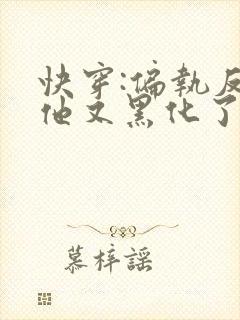 快穿:偏執反
他又黑化了
慕梓謠